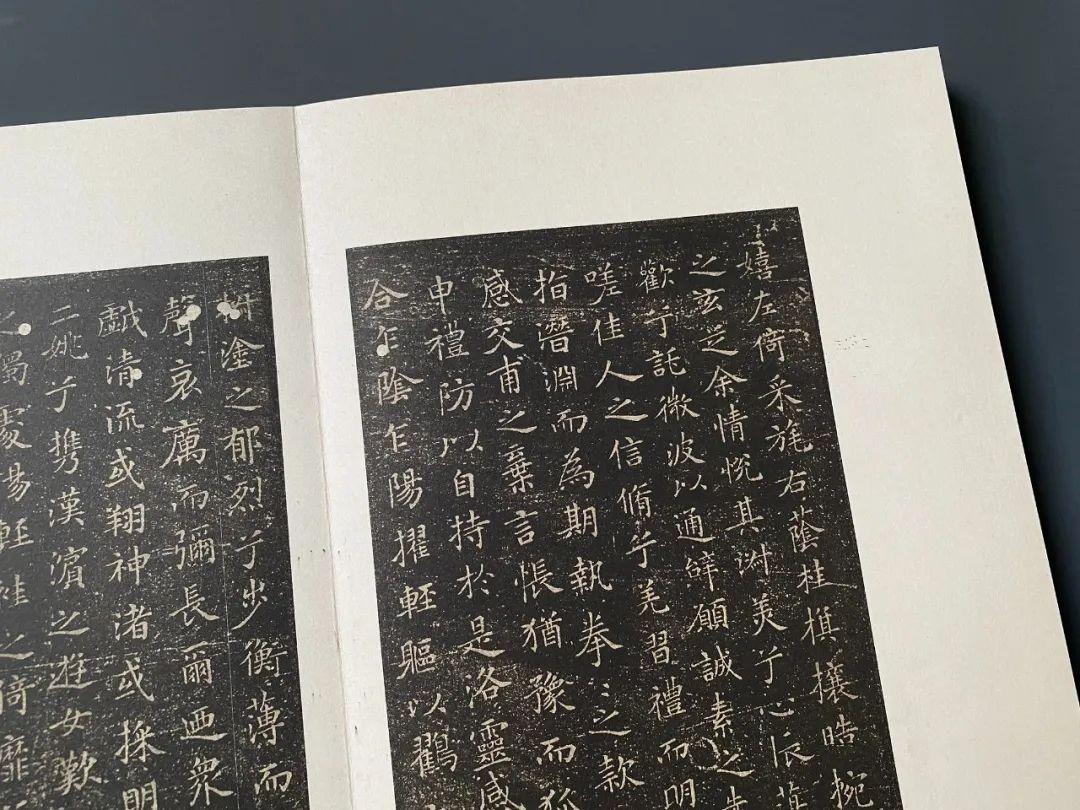 嬉左倚采旄右蔭桂旗攘晧捥
之玄芝余情悅其淑美兮心振蕩
歡兮託微波以通辭願誠素之先
嗟佳人之信脩兮羌習禮而明
指潛淵而為期執拳〻之款
感交甫之棄言悵猶豫而狐
申禮防以自持於是洛靈感
合乍陰乍陽擢輕軀以鶴
椒塗之郁烈兮步衡薄而
聲哀厲而彌長爾迺衆
戲清流或翔神渚或採明
二姚兮攜漢濱之遊女歎
之獨處揚輕袿之倚靡